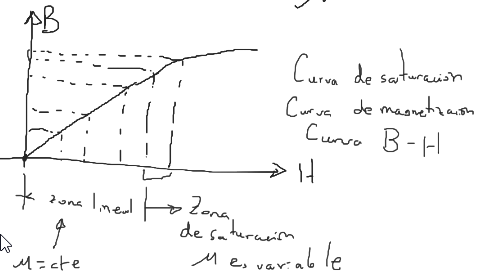 B
Curva de saturación
Curva de magnetización
Curva B-H
H
zona lineal
Zona
de saturación
μ = cte
μ es variable